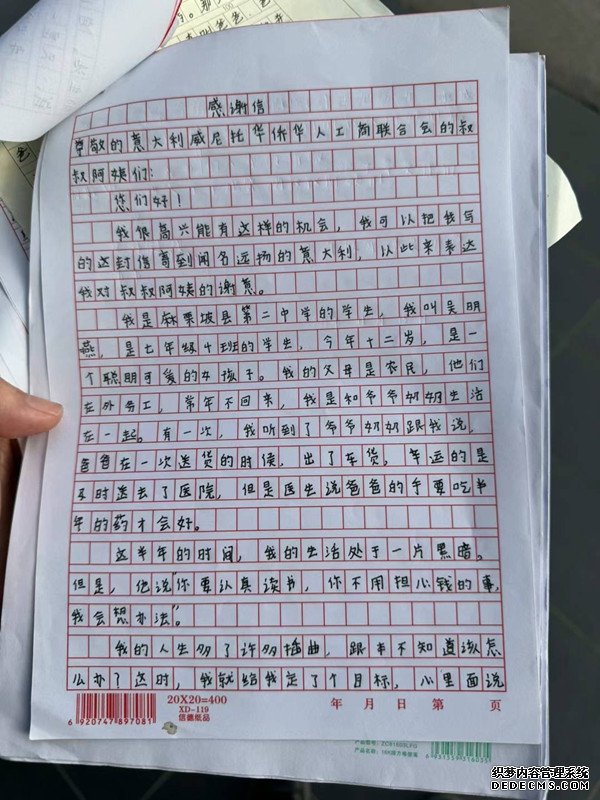 感谢信
尊敬的意大利威尼托华侨华人工商联合会的叔
叔阿姨们：
您们好！
我很高兴能有这样的机会，我可以把我写
的这封信寄到闻名远扬的意大利，以此来表达
我对叔叔阿姨的谢意。
我是麻栗坡县第二中学的学生，我叫吴明
燕，是七年级十班的学生，今年十二岁，是一
个聪明可爱的女孩子。我的父母是农民，他们
在外务工，常年不回来，我是和爷爷奶奶生活
在一起。有一次，我听到了爷爷奶奶跟我说，
爸爸在一次送货的时候，出了车货。幸运的是
及时送去了医院，但是医生说爸爸的手要吃半
年的药才会好。
这半年的时间，我的生活处于一片黑暗。
但是，他说"你要认真读书，你不用担心钱的事，
我会想办法"。
我的人生多了许多插曲，跟本不知道该怎
么办了这时，我就给我定了个目标，心里面说
20X20=400
XD-119
信德纸品
年 月 日 第 页
6 920747 897081
产品名称：16K
织梦内容管理系统
DEDECMS.COM